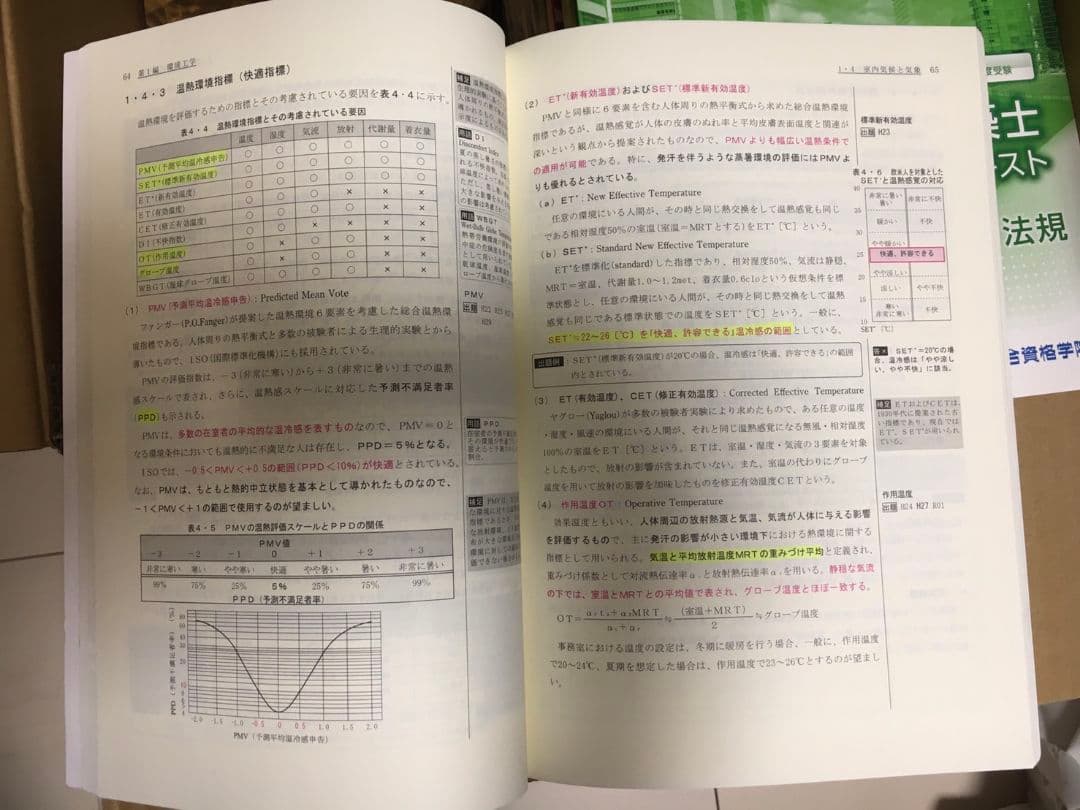 64 第1編 環境工学
1・4・3 温熱環境指標（快適指標）
温熱環境を評価するための指標とその考慮されている要因を表4・4に示す。
表4・4 温熱環境指標とその考慮されている要因
温度 湿度 気流 放射 代謝量 着衣量
PMV(予測平均温冷感申告) ○ ○ ○ ○ ○ ○
SET*(標準新有効温度) ○ ○ ○ ○ ○ ○
ET*(新有効温度) ○ ○ ○ ○ ○ ○
ET(有効温度)
CET(修正有効温度)
DI(不快指数)
OT(作用温度)
グローブ温度
WBGT(湿球グローブ温度)
(1) PMV(予測平均温冷感申告)：Predicted Mean Vote
ファンガー(P.O.Fanger)が提案した温熱環境6要素を考慮した総合温熱環
境指標である。人体周りの熱平衡式と多数の被験者による生理的実験とから
導いたもので、ISO(国際標準化機構)にも採用されている。
PMVの評価指数は、−3(非常に寒い)から+3(非常に暑い)までの温熱
感スケールで表され、さらに、温熱感スケールに対応した予測不満足者率
(PPD)も示される。
PMVは、多数の在室者の平均的な温冷感を表すものなので、PMV＝0と
なる環境条件においても温熱的に不満足な人は存在し、PPD＝5％となる。
ISOでは、−0.5＜PMV＜+0.5の範囲(PPD＜10％)が快適とされている。
なお、PMVは、もともと熱的中立状態を基本として導かれたものなので、
−1＜PMV＜+1の範囲で使用するのが望ましい。
表4・5 PMVの温熱評価スケールとPPDの関係
PMV値
−3 −2 −1 0 +1 +2 +3
非常に寒い 寒い やや寒い 快適 やや暑い 暑い 非常に暑い
99% 75% 25% 5% 25% 75% 99%
PPD(予測不満足者率)
PPD(予測不満足者率) (%)
-2.0 -1.5 -1.0 -0.5 0 0.5 1.0 1.5 2.0
PMV(予測平均温冷感申告)
補足
用語 DI
Discomfort Index
用語 WBGT
PMV
出題
用語 PPD
補足
1・4 室内気候と気象 65
(2) ET*(新有効温度)およびSET*(標準新有効温度)
PMVと同様に6要素を含む人体周りの熱平衡式から求めた総合温熱環境
指標であるが、温熱感覚が人体の皮膚のぬれ率と平均皮膚表面温度と関連が
深いという観点から提案されたものなので、PMVよりも幅広い温熱条件で
の適用が可能である。特に、発汗を伴うような蒸暑環境の評価にはPMVよ
りも優れるとされている。
(a) ET*：New Effective Temperature
任意の環境にいる人間が、その時と同じ熱交換をして温熱感覚も同じ
である相対湿度50％の室温(室温＝MRTとする)をET*〔℃〕という。
(b) SET*：Standard New Effective Temperature
ET*を標準化(standard)した指標であり、相対湿度50％、気流は静穏、
MRT＝室温、代謝量1.0〜1.2met、着衣量0.6cloという仮想条件を標
準状態とし、任意の環境にいる人間が、その時と同じ熱交換をして温熱
感覚も同じである標準状態での温度をSET*〔℃〕という。一般に、
SET*≒22〜26〔℃〕を「快適、許容できる」温冷感の範囲としている。
出題例：SET*(標準新有効温度)が20℃の場合、温冷感は「快適、許容できる」の範囲
内とされている。
(3) ET(有効温度)、CET(修正有効温度)：Corrected Effective Temperature
ヤグロー(Yaglou)が多数の被験者実験により求めたもので、ある任意の温度
・湿度・風速の環境にいる人間が、それと同じ温熱感覚になる無風・相対湿度
100％の室温をET〔℃〕という。ETは、室温・湿度・気流の3要素を対象
としたもので、放射の影響が含まれていない。また、室温の代わりにグローブ
温度を用いて放射の影響を加味したものを修正有効温度CETという。
(4) 作用温度OT：Operative Temperature
効果温度ともいい、人体周辺の放射熱源と気温、気流が人体に与える影響
を評価するもので、主に発汗の影響が小さい環境下における熱環境に関する
指標として用いられる。気温と平均放射温度MRTの重みづけ平均と定義され、
重みづけ係数として対流熱伝達率αcと放射熱伝達率αrを用いる。静穏な気流
の下では、室温とMRTとの平均値で表され、グローブ温度とほぼ一致する。
OT＝(αc tₐ+αr MRT)/(αc+αr)≒(室温+MRT)/2≒グローブ温度
事務室における温度の設定は、冬期に暖房を行う場合、一般に、作用温度
で20〜24℃、夏期を想定した場合は、作用温度で23〜26℃とするのが望まし
い。
標準新有効温度
出題 H23
表4・6 欧米人を対象とした
SET*と温熱感覚の対応
40 35 30 25 20 15 10
非常に暑い 非常に不快
暑い
暖かい 不快
やや暖かい
快適、許容できる
やや涼しい
涼しい やや不快
寒い
非常に寒い 不快
SET*〔℃〕
答× SET*＝20℃の場
合、温冷感は「やや涼し
い、やや不快」に該当。
補足 ETおよびCETは、
1920年代に提案された古
い指標であり、現在では
ET*、SET*が用いられ
ている。
作用温度
出題 H24 H27 R01
度受験
築士
テキスト
法規
合資格学院